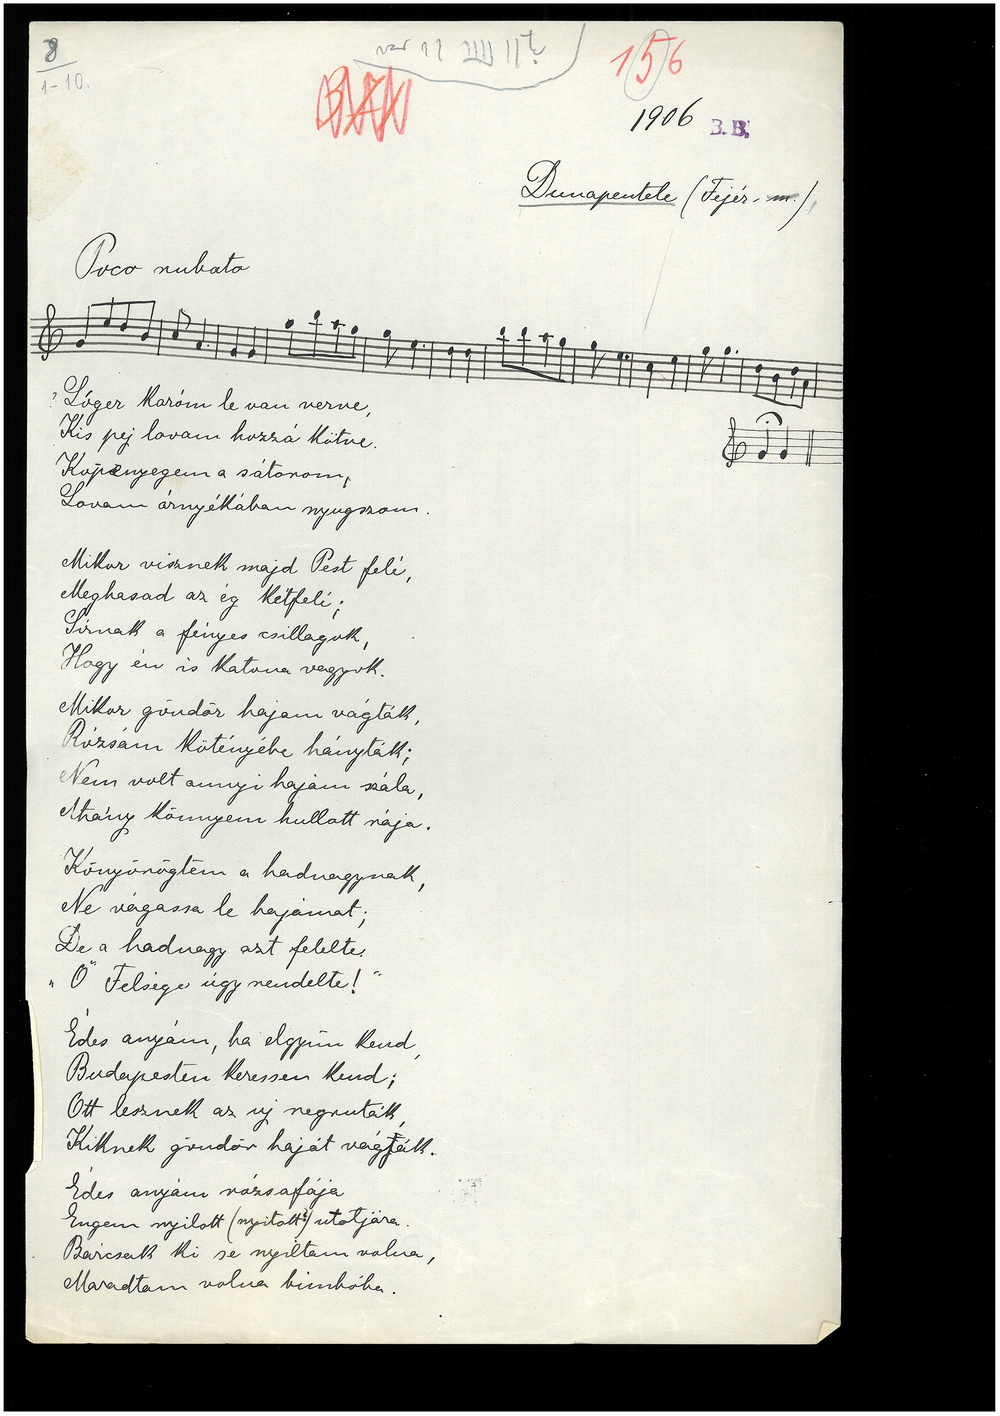 8
1-10.
156
1906 B.B.
Dunapentele (Fejér-m.)
Poco rubato
? Lóger karóm le van verve,
Kis pej lovam hozzá kötve.
Köpenyegem a sátorom,
Lovam árnyékában nyugszom.
Mikor visznek majd Pest felé,
Meghasad az ég kétfelé;
Sirnak a fényes csillagok,
Hogy én is katona vagyok.
Mikor göndör hajam vágták,
Rózsám kötényébe hányták;
Nem volt annyi hajam szála,
Ahány könnyem hullott rája.
Könyörögtem a hadnagynak,
Ne vágassa le hajamat;
De a hadnagy azt felelte:
„Ő" Felsége úgy rendelte!"
Édes anyám, ha elgyün kend,
Budapesten keressen kend;
Ott lesznek az uj regruták,
Kiknek göndör haját vágják.
Édes anyám rózsafája
Engem nyilott (nyitott?) utotjára.
Bárcsak ki se nyiltam volna,
Maradtam volna bimbóba.